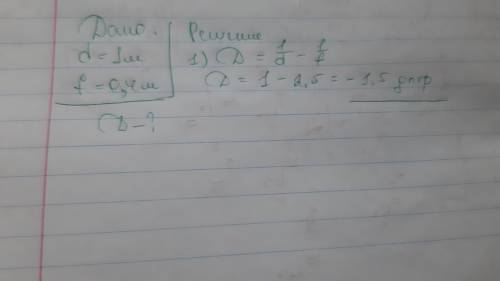 Дано:
d = 1м
f = 0,4м
D - ?
Решение
1) D = 1/d - 1/f
D = 1 - 2,5 = - 1,5 дптр